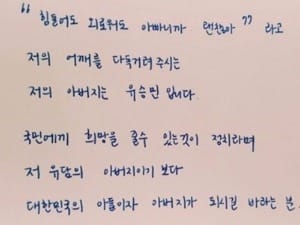 “ 힘들어도 외로워도 아빠니까 괜찮아 ” 라고
저의 어깨를 다독거려 주시는
저의 아버지는 유승민 입니다.
국민에게 희망을 줄수 있는것이 정치라며
저 유담의 아버지이기 보다
대한민국의 아들이자 아버지가 되시길 바라는 분.